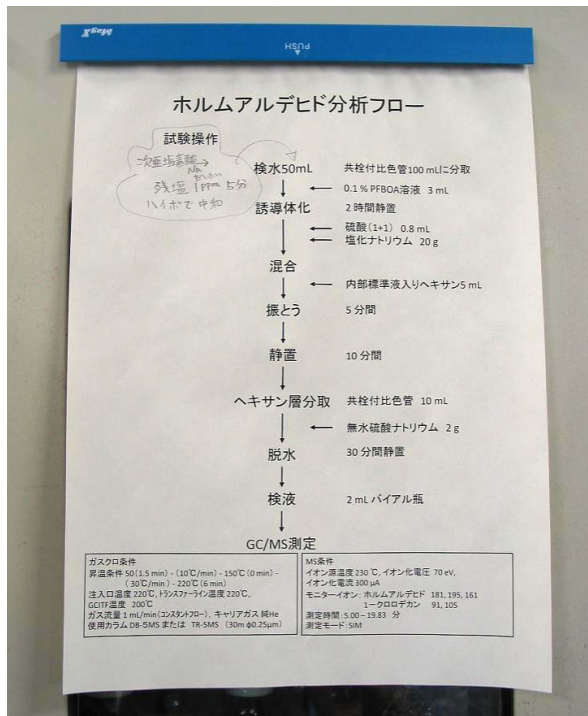 MagX
PUSH
ホルムアルデヒド分析フロー
試験操作
次亜塩素酸
Na
残塩 1ppm 5分
ハイポで中和
検水50mL 共栓付比色管100 mLに分取
0.1％PFBOA溶液 3 mL
誘導体化 2時間静置
硫酸(1+1) 0.8 mL
塩化ナトリウム 20 g
混合
内部標準液入りヘキサン5 mL
振とう 5分間
静置 10分間
ヘキサン層分取 共栓付比色管 10 mL
無水硫酸ナトリウム 2 g
脱水 30分間静置
検液 2 mLバイアル瓶
GC/MS測定
ガスクロ条件
昇温条件 50(1.5 min) - (10℃/min) - 150℃(0 min) -
(30℃/min) - 220℃(6 min)
注入口温度 220℃、トランスファーライン温度 220℃、
GCITF温度 200℃
ガス流量 1 mL/min(コンスタントフロー)、キャリアガス 純He
使用カラム DB-5MS または TR-5MS (30m φ0.25μm)
MS条件
イオン源温度 230 ℃、イオン化電圧 70 eV、
イオン化電流 300 μA
モニターイオン：ホルムアルデヒド 181, 195, 161
1－クロロデカン 91, 105
測定時間：5.00－19.83 分
測定モード：SIM